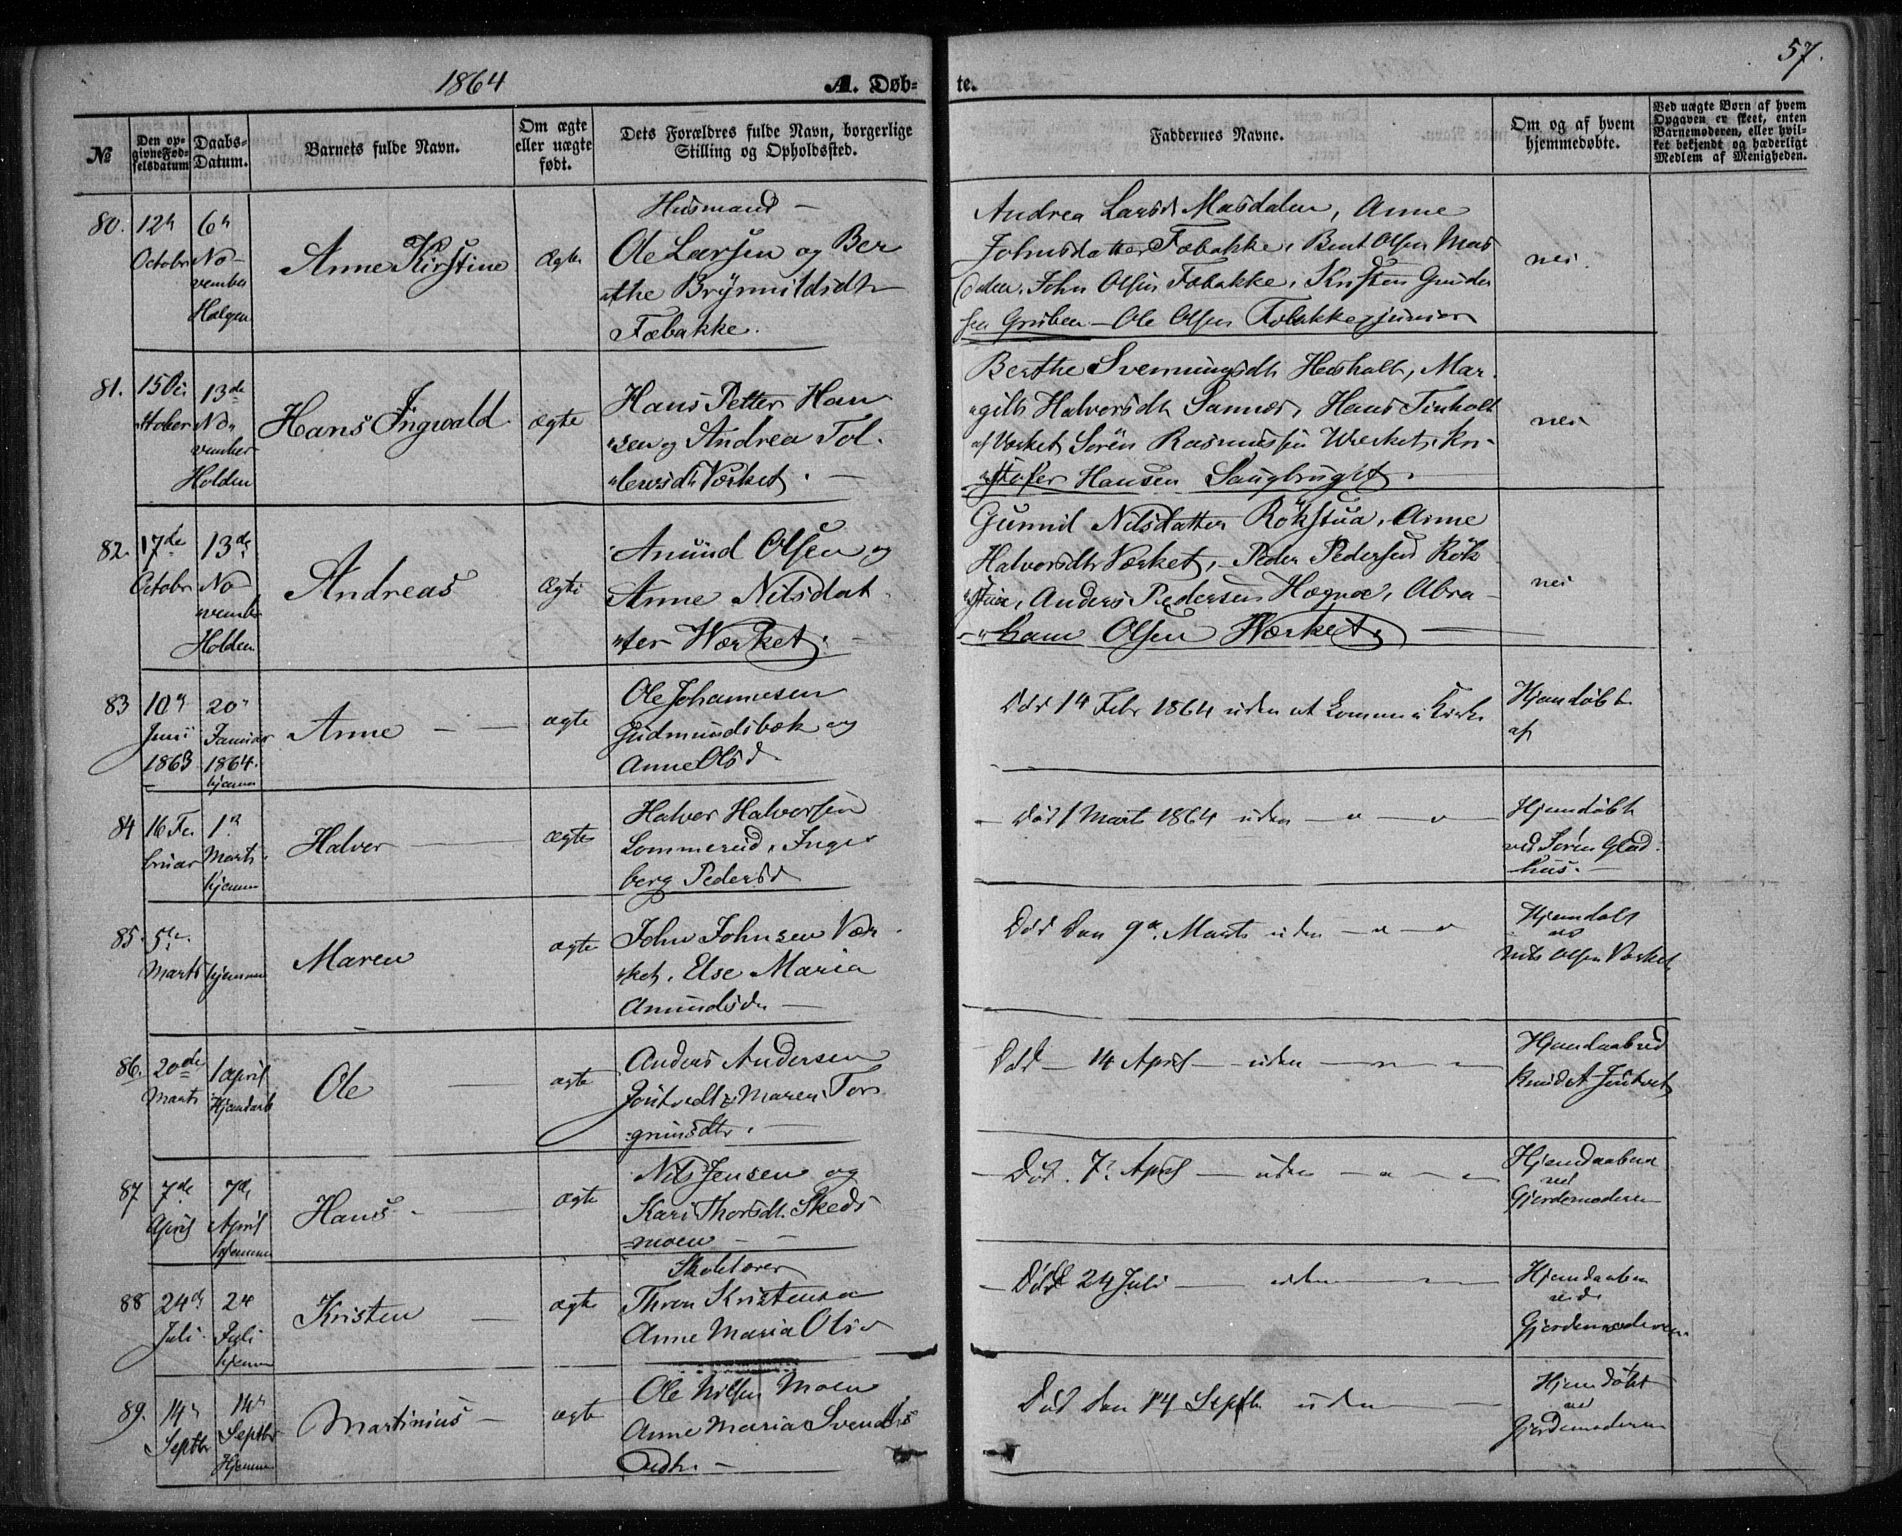 1864
A. Døb-
te.
57.
№
Den op-
givne Fød-
selsdatum
Daabs-
Datum.
Barnets fulde Navn.
Om ægte
eller uægte
født.
Dets Forældres fulde Navn, borgerlige
Stilling og Opholdssted.
Faddernes Navne.
Om og af hvem
hjemmedøbte.
Ved uægte Børn af hvem
Opgaven er skeet, enten
Barnemoderen, eller hvil-
ket bekjendt og hæderligt
Medlem af Menigheden.
80.
12te
October
6te
No-
vember
Helgen
Anne Kirstine
Ægte
Husmand -
Ole Larsen og Ber
the Brynnildsdtr
Fæbakke.
Andrea Larsd. Masdalen, Anne
Johnsdatter Fæbakke, Bent Olsen Mas
dalen, John Olsen Fæbakke, Kristen
fra Gruben - Ole Olsen Fæbakke junior
nei.
81.
15 Oc
tober
13de
No-
vember
Holden
Hans Ingwald
ægte
Hans Petter Han
sen og Andrea Tol
levsdtr Værket. -
Berthe Svenningsdtr Hesholt, Mar
git Halvorsdtr Sannes, Hans Tinholt
af Værket Søren Rasmussen Værket, Kri-
stofer Hansen Saugbruget.
nei
82.
17de
October
13de
No-
vember
Holden
Andreas
Ægte
Amund Olsen og
Anne Nilsdat
ter Værket. -
Gunnild Nilsdatter Rökstua, Anne
Halvorsdtr Værket, Peder Pedersen Rök
stua, Anders Pedersen Hægna, Abra-
ham Olsen Værket.
nei
83
10de
Juni
1863
20
Januar
1864.
hjemme
Anne
ægte
Ole Johannesen
Gudmundsbæk og
Anne Olsd
Død 14 Febr 1864 uden at komme i Kirke
Hjemdøbt
af
84
16 Fe
bruar
1ste
Marts
hjemme
Halvor
ægte
Halvor Halvorsen
Lommerud, Inge
berg Pedersd
- Død 1 Marts 1864 uden - " - "
Hjemdøbt
ved Søren Glad
hus. -
85.
5te
Marts
hjemme
Maren
ægte
John Johnsen Vær
ket, Else Maria
Amundsdr -
Død den 9de Marts uden - " - "
Hjemdøbt
ved
Nils Olsen Værket
86.
20de
Marts
1 April
Hjemdøbt
Ole
ægte
Anders Andersen
Jöntvedt & Maren Tor
grimsdtr. -
Død - 14 April - uden - " - " -
Hjemdaab ved
Knud A. Jöntvet
87
7de
April
7de
April
hjemme
Hans
ægte
Nils Jensen og
Kari Thorsdtr. Skeds
moen - -
- Død. 7de April - uden - " - " -
Hjemdaaben
ved
Gjordemoderen
88
24de
Juli
24
Juli
hjemme
Kristen
ægte
Skolelærer
Thron Kristensen
Anne Maria Olsd
- Død 24 Juli - uden - -
Hjemdaaben
ved
Gjordemoderen
89.
14de
Septbr
14de
Septbr
Hjemme
Martinius
ægte
Ole Nilsen Moen
Anne Maria Svends
dtr. -
Død den 14 Septbr uden - -
Hjemdøbt
ved
Gjordemoderen